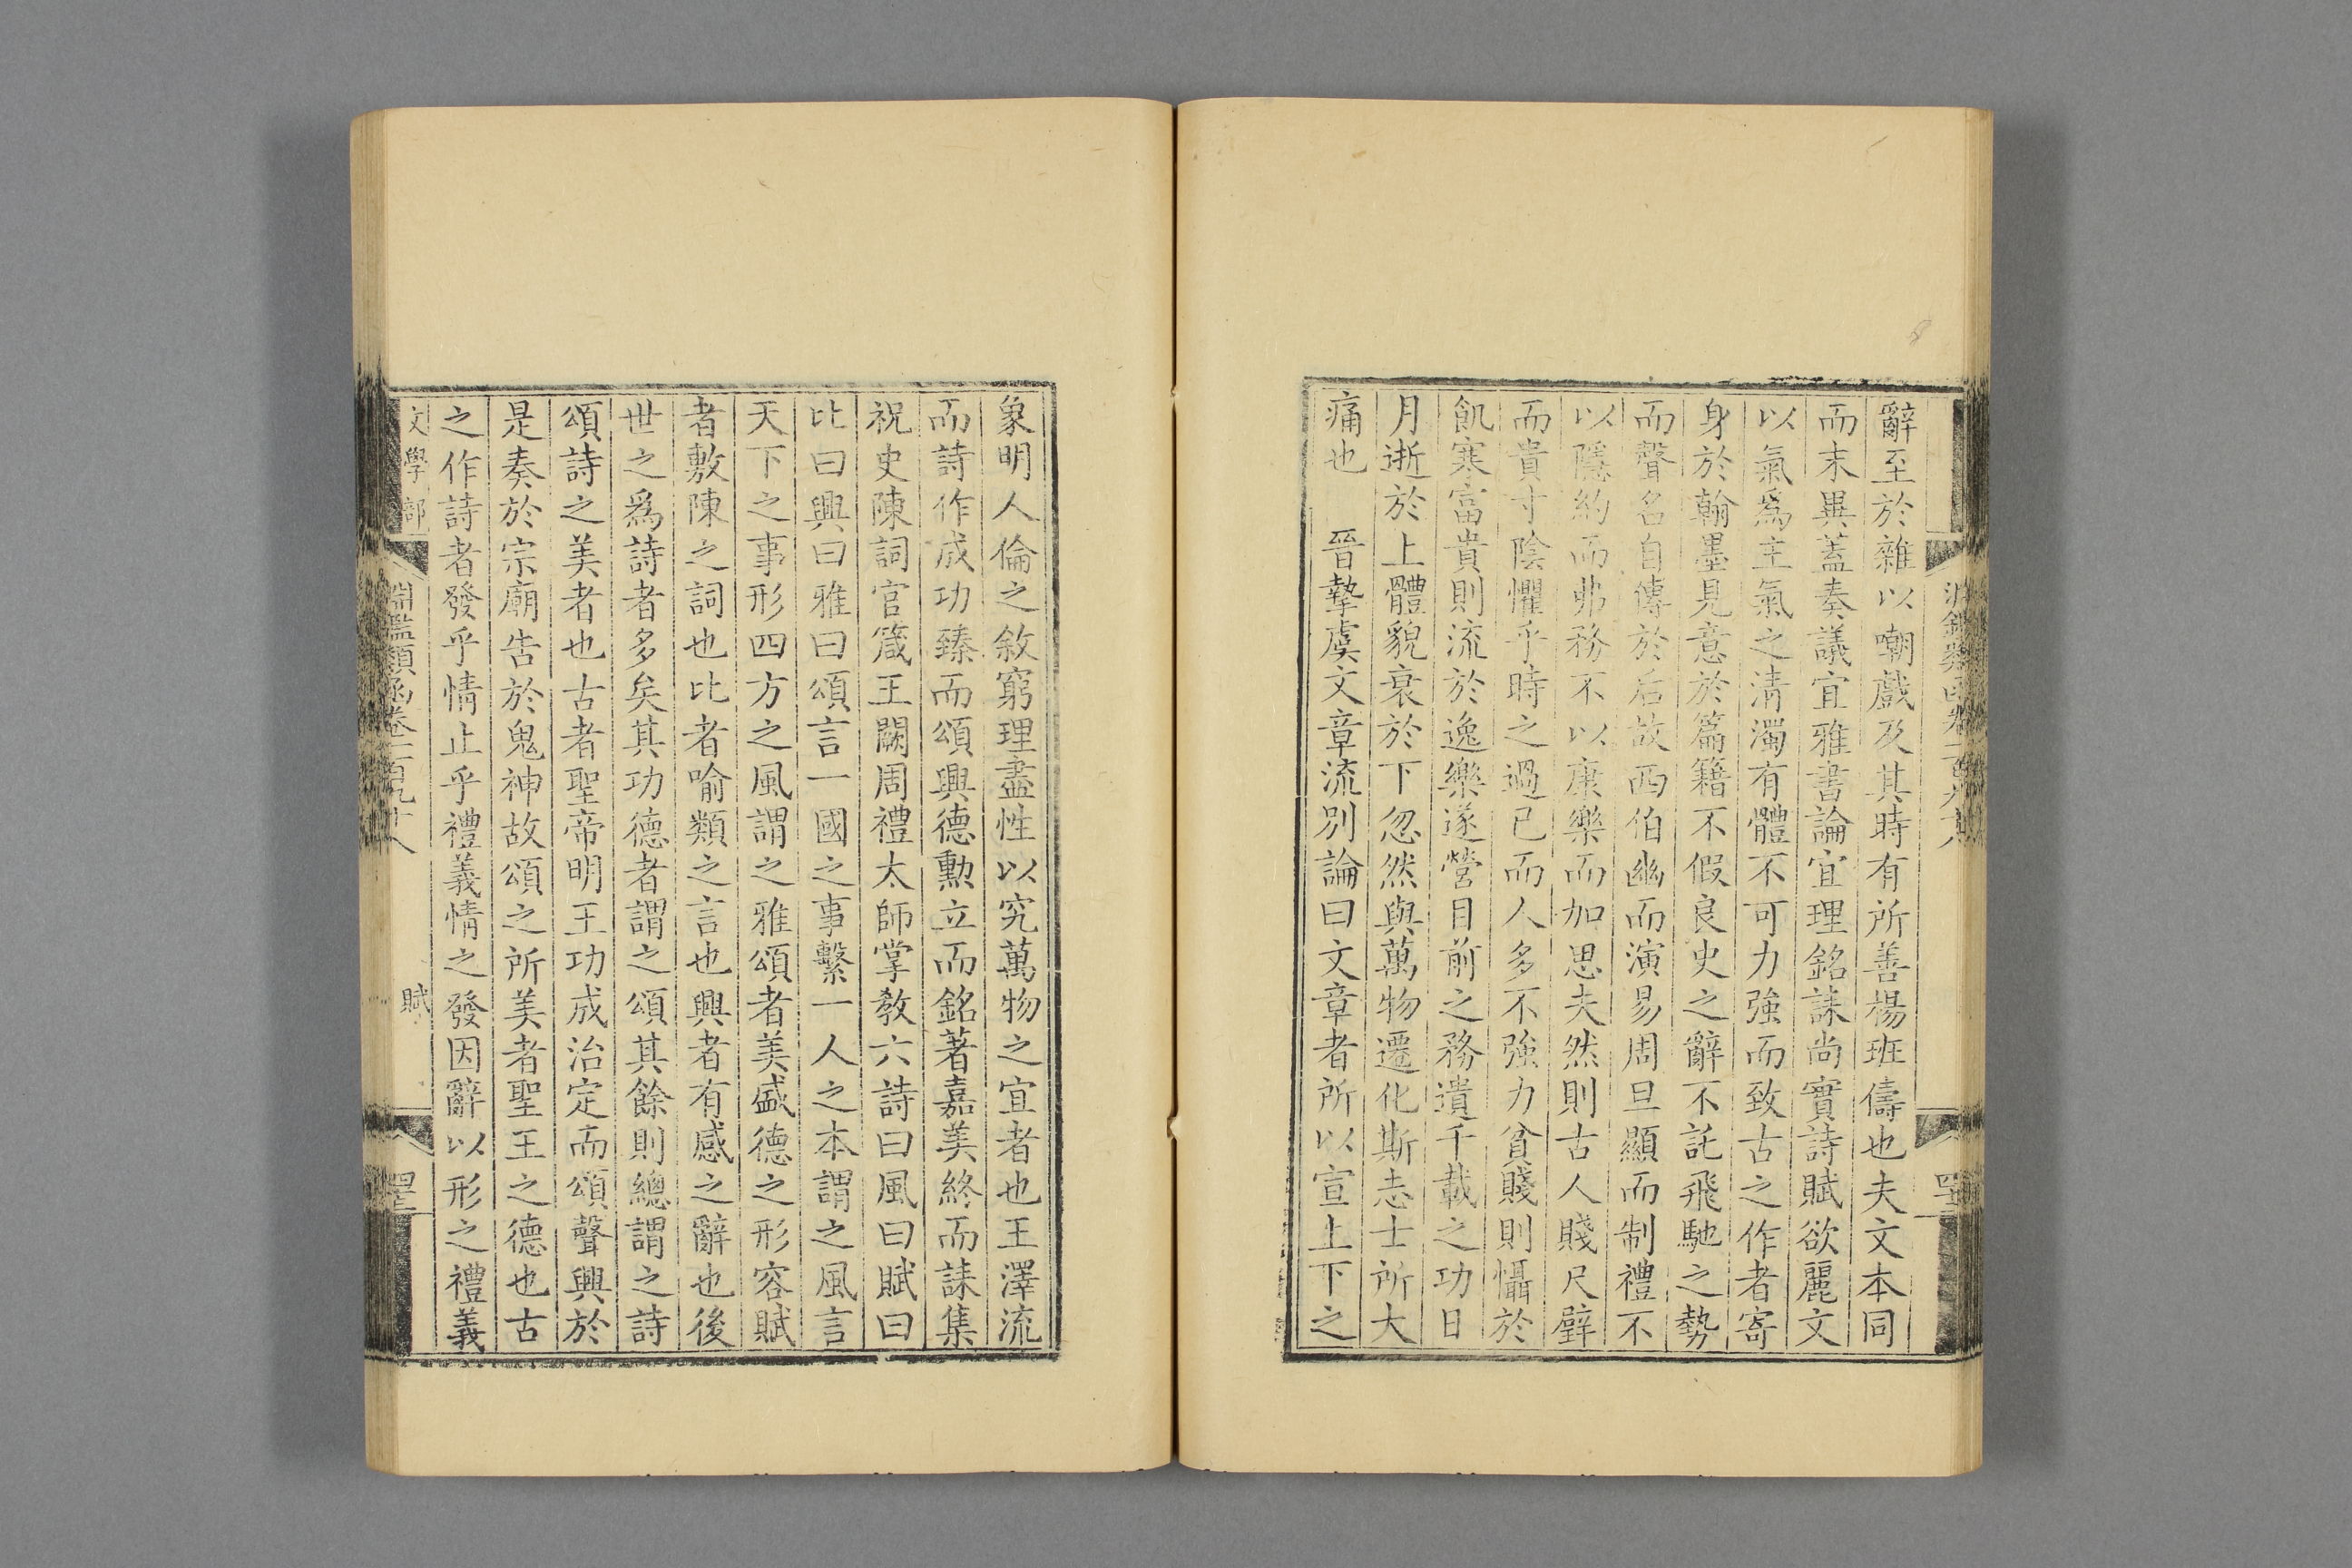 辭至於雜以嘲戲及其時有所善楊班儔也夫文本同
而末異蓋奏議宜雅書論宜理銘誄尚實詩賦欲麗文
以氣爲主氣之清濁有體不可力強而致古之作者寄
身於翰墨見意於篇籍不假良史之辭不託飛馳之勢
而聲名自傳於后故西伯幽而演易周旦顯而制禮不
以隱約而弗務不以康樂而加思夫然則古人賤尺璧
而貴寸陰懼乎時之過已而人多不強力貧賤則懾於
飢寒富貴則流於逸樂遂營目前之務遺千載之功日
月逝於上體貌衰於下忽然與萬物遷化斯志士所大
痛也　晉摯虞文章流別論曰文章者所以宣上下之
象明人倫之敘窮理盡性以究萬物之宜者也王澤流
而詩作成功臻而頌興德勳立而銘著嘉美終而誄集
祝史陳詞官箴王闕周禮太師掌教六詩曰風曰賦曰
比曰興曰雅曰頌言一國之事繫一人之本謂之風言
天下之事形四方之風謂之雅頌者美盛德之形容賦
者敷陳之詞也比者喻類之言也興者有感之辭也後
世之爲詩者多矣其功德者謂之頌其餘則總謂之詩
頌詩之美者也古者聖帝明王功成治定而頌聲興於
是奏於宗廟告於鬼神故頌之所美者聖王之德也古
之作詩者發乎情止乎禮義情之發因辭以形之禮義
文學部　淵鑑類函卷一百九十八　賦